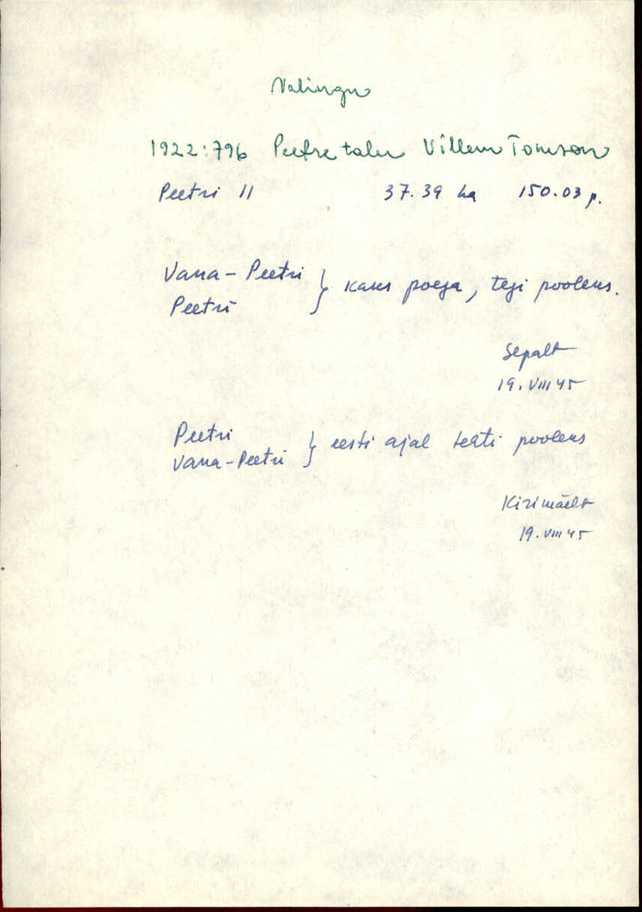 Valingu
1922:796 Peetre talu Villem Tomson
Peetri 11 37.39 ha 150.03 p.
Vana-Peetri } kaks poega, tegi pooleks.
Peetri
Sepalt
19.VIII 45
Peetri } eesti ajal tehti pooleks
Vana-Peetri
Kirimäelt
19.VIII 45